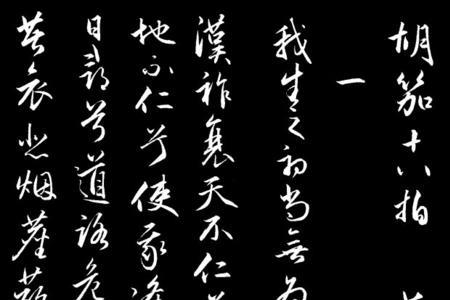 胡笳十八拍
一
我生之初尚無為
漢祚衰天不仁兮
地不仁兮使我逢
日尋兮道路危
共哀悲烟塵蔽